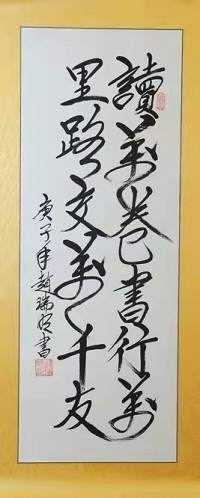 讀萬卷書行萬
里路交萬千友
庚子年趙瑞明書